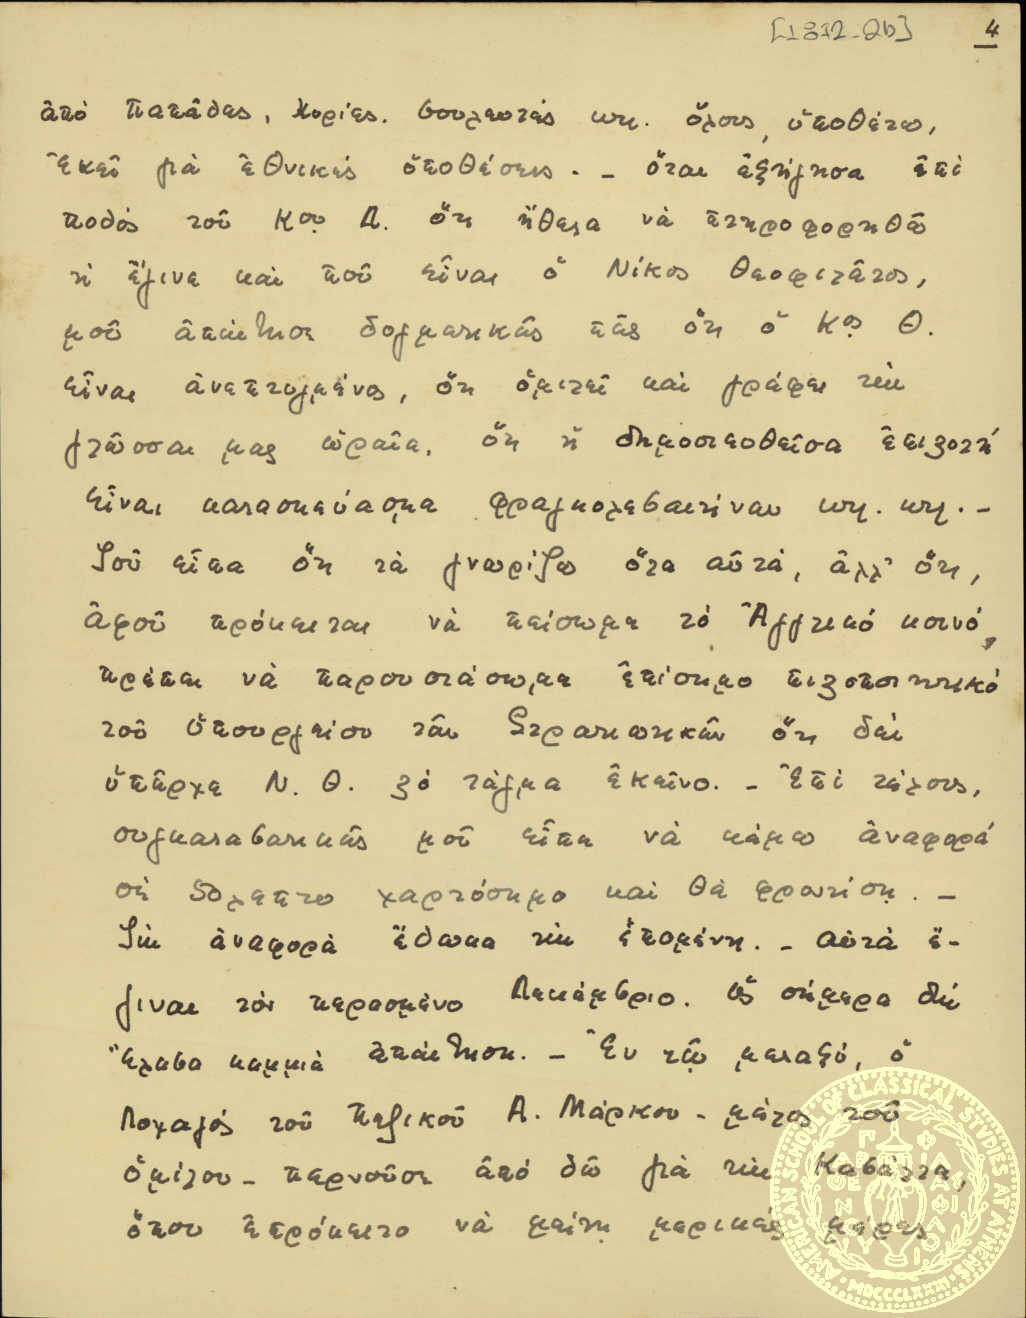 [1372-2b]
4
ἀπὸ παπᾶδες, κυρίες, βουλευτὲς κτλ. ὅλους, ὑποθέτω,
ἐκεῖ γιὰ ἐθνικὲς ὑποθέσεις. – ὅταν ἐξήγησα ἐπὶ
ποδὸς τοῦ Κου Δ. ὅτι ἤθελα νὰ πληροφορηθῶ
τί ἔγινε καὶ ποῦ εἶναι ὁ Νίκος Θεοφιλᾶτος,
μοῦ ἀπάντησε δογματικῶς πῶς ὅτι ὁ Κος Θ.
εἶναι ἀνεπτυγμένος, ὅτι ὁμιλεῖ καὶ γράφει τὴν
γλῶσσαν μας ὡραῖα, ὅτι ἡ δημοσιευθεῖσα ἐπιστολή
εἶναι κατασκεύασμα φραγκολεβαντίνων κτλ. κτλ. –
Τοῦ εἶπα ὅτι τὰ γνωρίζω ὅλα αὐτά, ἀλλ' ὅτι,
ἀφοῦ πρόκειται νὰ πείσωμε τὸ Ἀγγλικό κοινό,
πρέπει νὰ παρουσιάσωμε ἐπίσημο πιστοποιητικό
τοῦ Ὑπουργείου τῶν Στρατιωτικῶν ὅτι δὲν
ὑπῆρχε Ν. Θ. στὸ τάγμα ἐκεῖνο. – Ἐπὶ τέλους,
συγκαταβατικῶς μοῦ εἶπε νὰ κάμω ἀναφορά
σὲ χαρτόσημο καὶ θὰ φροντίσῃ. –
Τὴν ἀναφορὰ ἔδωκα τὴν ἑπομένη. – αὐτὰ ἔ-
γιναν τὸν περασμένο Δεκέμβριο. Ὣς σήμερα δὲν
ἔλαβα καμμιὰ ἀπάντηση. – Ἐν τῷ μεταξύ, ὁ
Λοχαγός τοῦ Πεζικοῦ Α. Μάρκου – μέλος τοῦ
ὁμίλου – περνοῦσε ἀπὸ δῶ γιὰ τὴν Καβάλλα,
ὅπου ἐπρόκειτο νὰ μείνῃ μερικὲς μέρες
AMERICAN SCHOOL OF CLASSICAL STUDIES AT ATHENS
MDCCCLXXXI